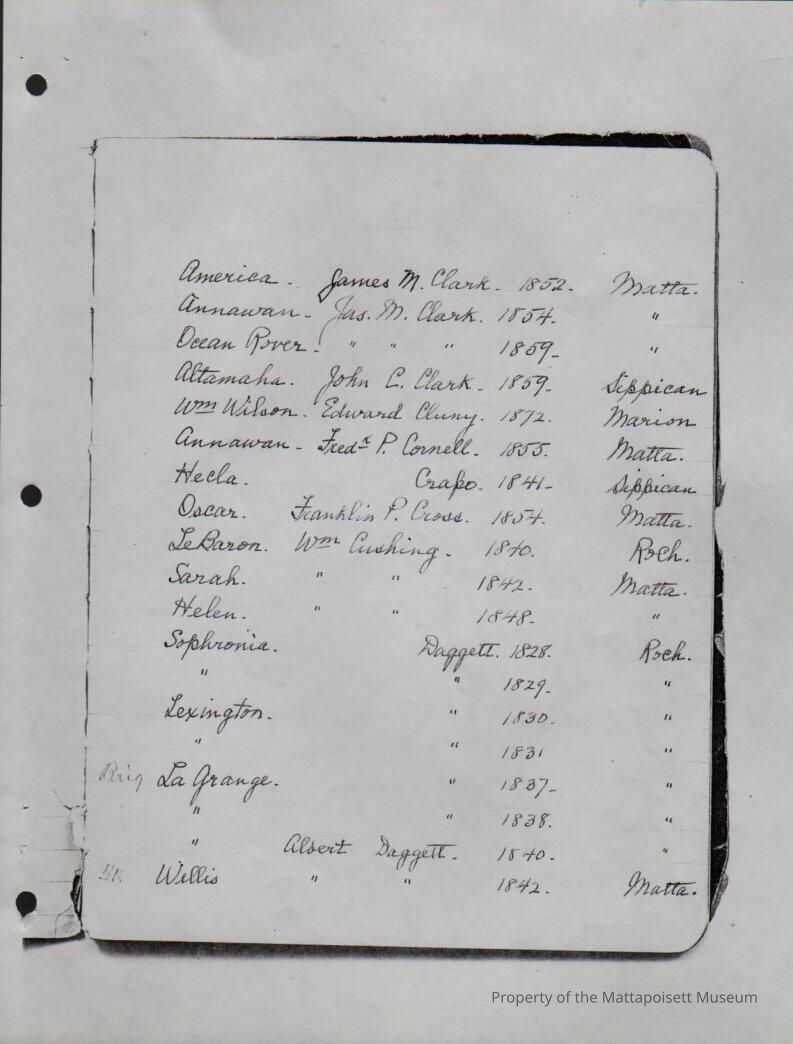 America. James M. Clark. 1852. Matta.
Annawan. Jas. M. Clark. 1854. "
Ocean Rover. " " " 1859. "
Altamaha. John C. Clark. 1859. Sippican
Wm Wilson. Edward Cluny. 1872. Marion
Annawan. Fredk P. Cornell. 1855. Matta.
Hecla. Crapo. 1841. Sippican
Oscar. Franklin P. Cross. 1854. Matta.
LeBaron. Wm Cushing. 1840. Roch.
Sarah. " " 1842. Matta.
Helen. " " 1848. "
Sophronia. Daggett. 1828. Roch.
" " 1829. "
Lexington. " 1830. "
" " 1831 "
Brig La Grange. " 1837. "
" " 1838. "
" Albert Daggett. 1840. "
Bk Willis " " 1842. Matta.
Property of the Mattapoisett Museum